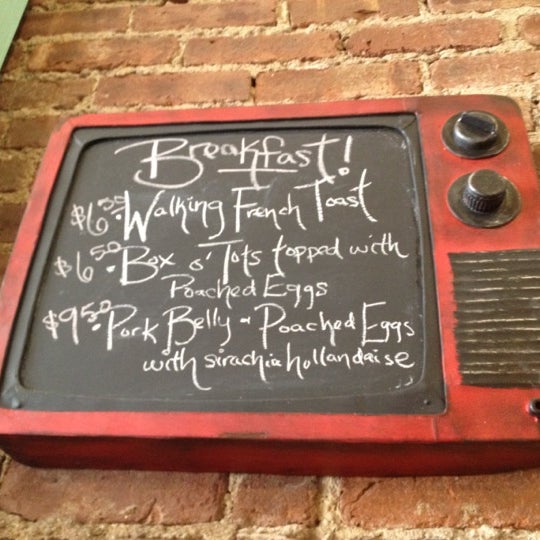 Breakfast!
$6.50 • Walking French Toast
$6.50 • Box o' Tots topped with
Poached Eggs
$9.50 • Pork Belly + Poached Eggs
with sirachia hollandaise